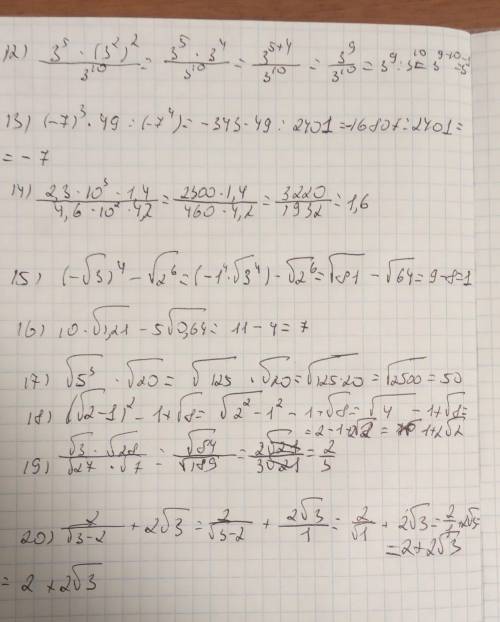 12) (3⁵ · (3²)²)/3¹⁰ = (3⁵ · 3⁴)/3¹⁰ = 3⁵⁺⁴/3¹⁰ = 3⁹/3¹⁰ = 3⁹ : 3¹⁰ = 3⁹⁻¹⁰
13) (-7)³ · 49 : (-7⁴) = -343 · 49 : 2401 = -16807 : 2401 =
= -7
14) (2,3 · 10³ · 1,4)/(4,6 · 10² · 4,2) = (2300 · 1,4)/(460 · 4,2) = 3220/1932 = 1,6
15) (-√3)⁴ - √2⁶ = (-1⁴ · √3⁴) - √2⁶ = √81 - √64 = 9 - 8 = 1
16) 10 · √1,21 - 5√0,64 = 11 - 4 = 7
17) √5³ · √20 = √125 · √20 = √125·20 = √2500 = 50
18) (√2-1)² - 1+√8 = √2² - 1² - 1+√8 = √4 - 1+√8 =
= 2-1+2√2 = 1+2√2
19) (√3 · √28)/(√27 · √7) = √84/√189 = 2√21/3√21 = 2/3
20) 2/(√3-2) + 2√3 = 2/(√3-2) + 2√3/1 = 2/√1 + 2√3 = 2/1 + 2√3
= 2+2√3
= 2 + 2√3